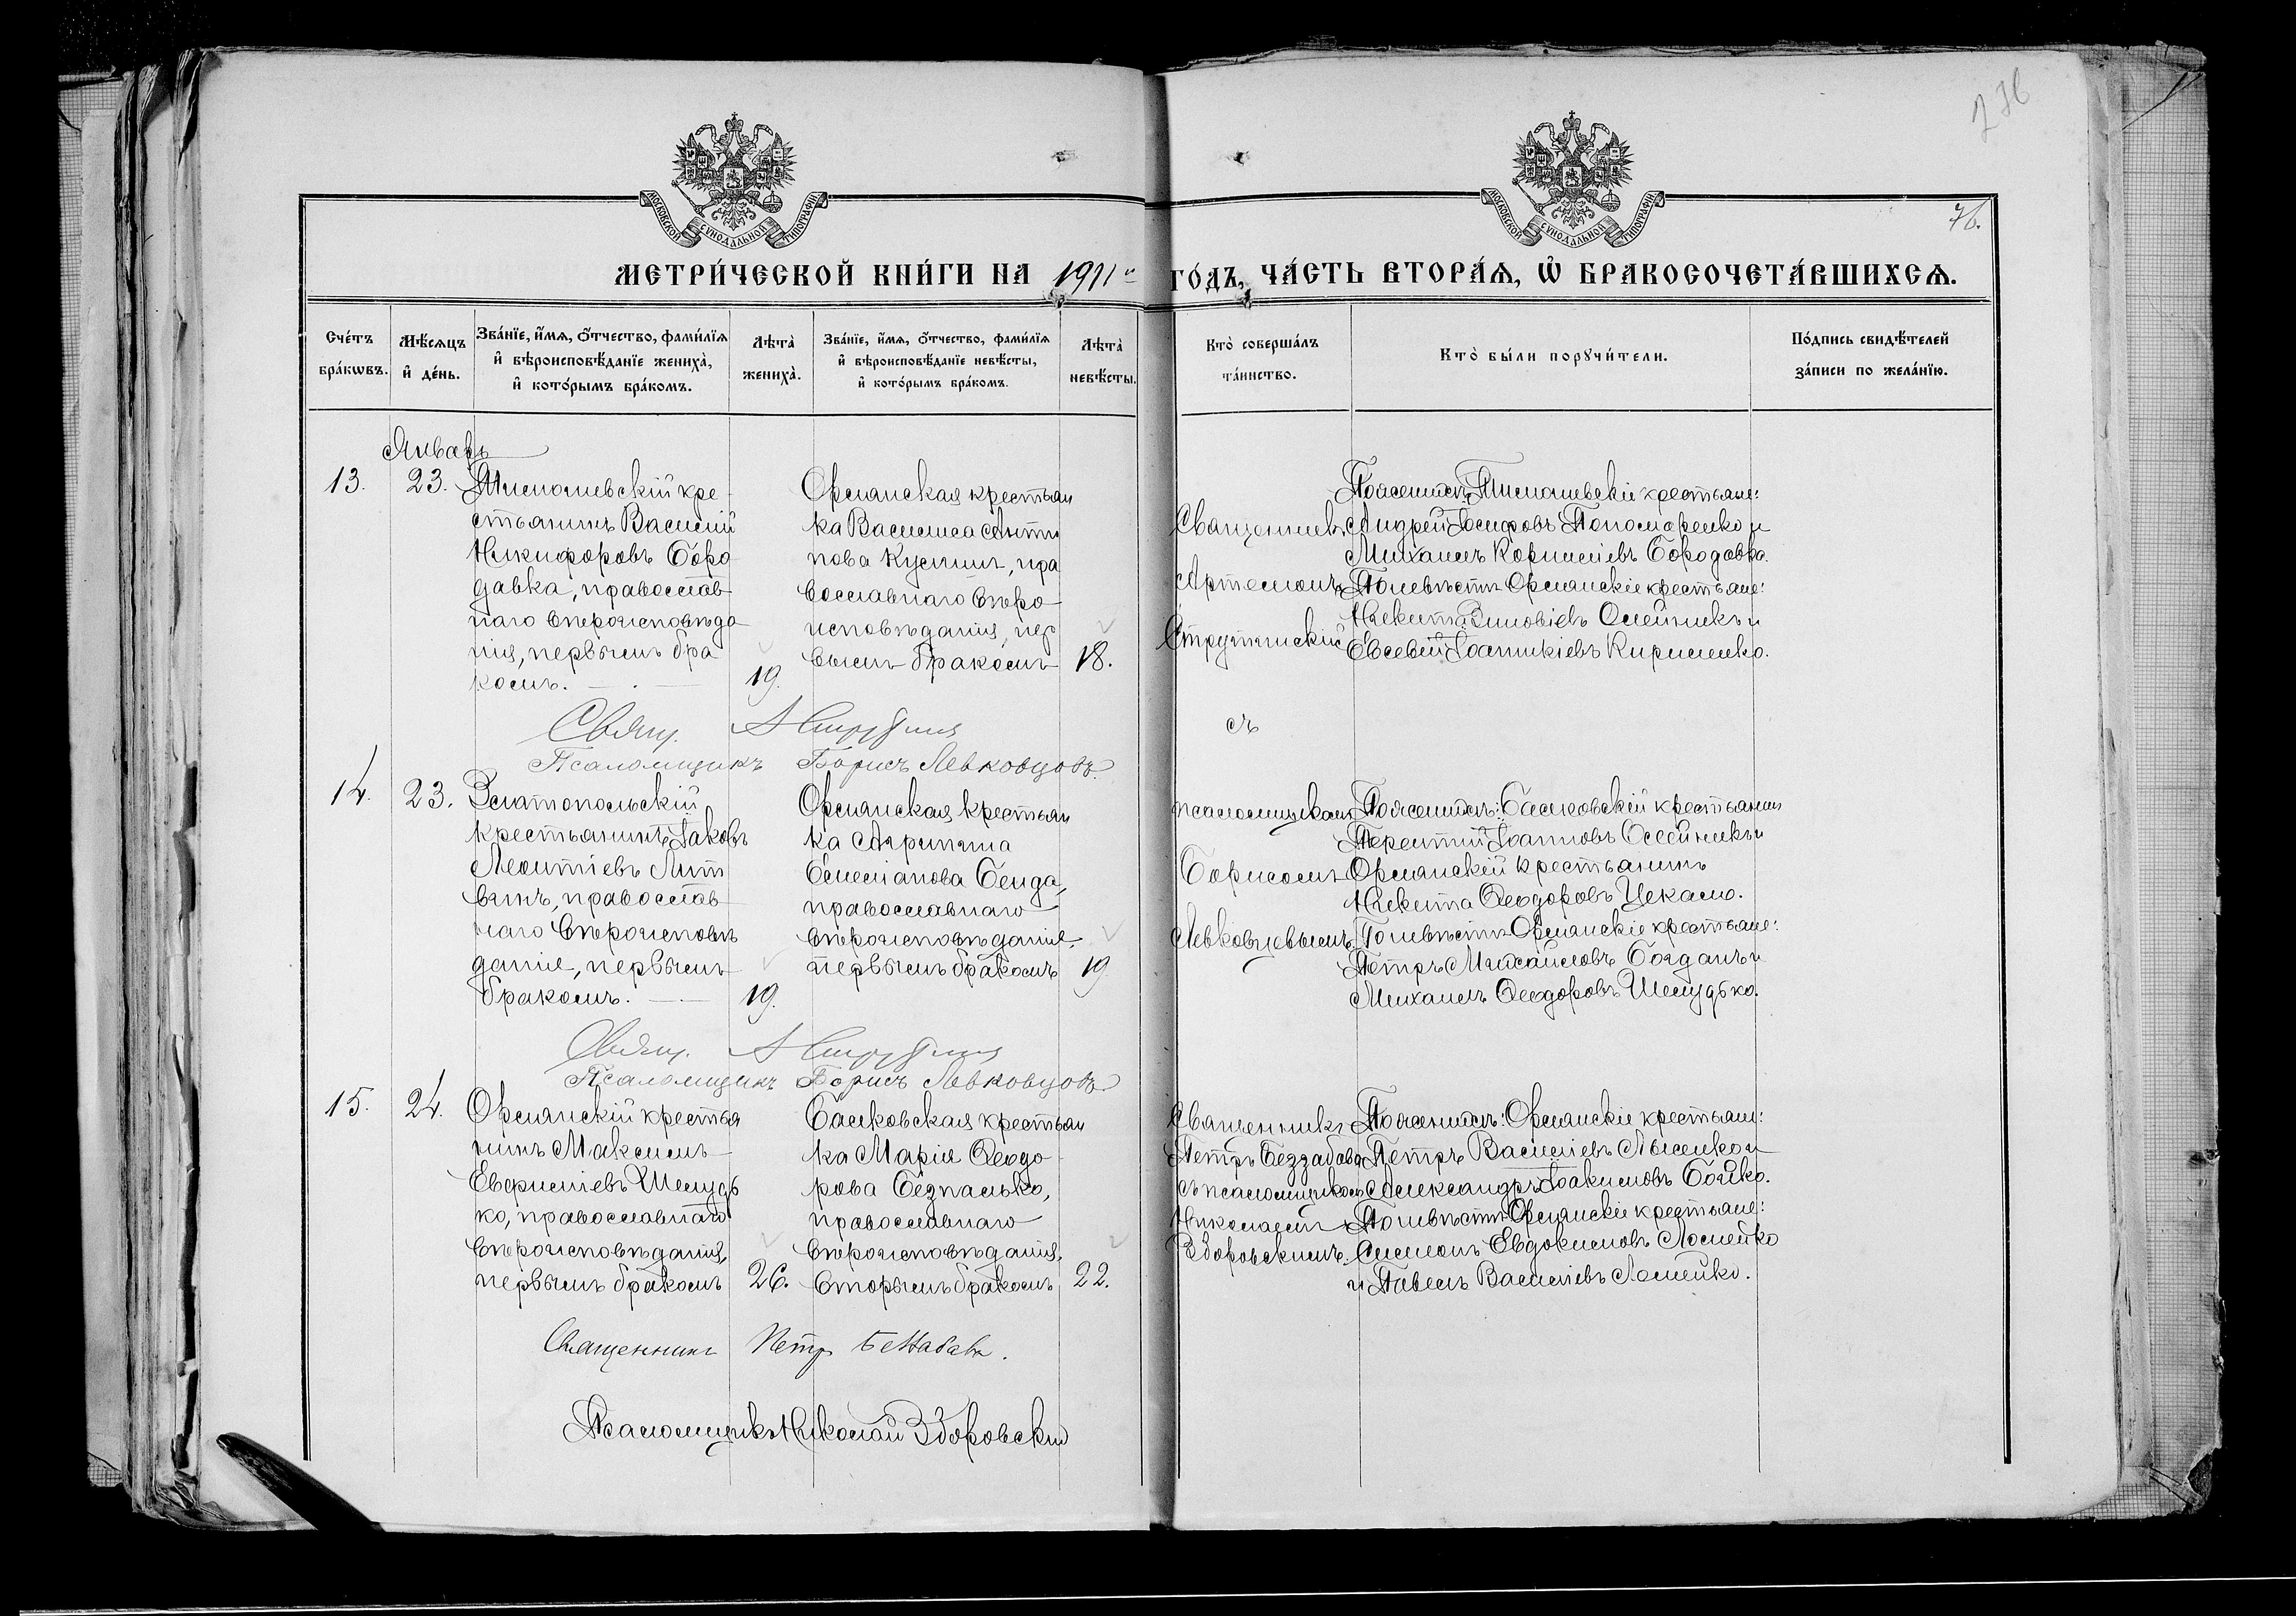 276
76.
МОСКОВСКОЙ СѴНОДАЛЬНОЙ ТИПОГРАФІИ
МОСКОВСКОЙ СѴНОДАЛЬНОЙ ТИПОГРАФІИ
МЕТРИ́ЧЕСКОЙ КНИ́ГИ НА 1911й ГО́ДЪ, ЧА́СТЬ ВТОРА́Ѧ, Ѡ҆ БРАКОСОЧЕТА́ВШИХСѦ.
Сче́тъ бра́кѡвъ.
Мѣ́сѧцъ и҆ де́нь.
Зва́нїе, и҆́мѧ, ѻ҆́тчество, фами́лїѧ
и҆ вѣроисповѣ́данїе жениха̀,
и҆ кото́рымъ бра́комъ.
Лѣта̀ жениха̀.
Зва́нїе, и҆́мѧ, ѻ҆́тчество, фами́лїѧ
и҆ вѣроисповѣ́данїе невѣ́сты,
и҆ кото́рымъ бра́комъ.
Лѣта̀ невѣ́сты.
Кто̀ соверша́лъ та́инство.
Кто̀ бы́ли порꙋчи́тели.
По́дпись свидѣ́телей
за́писи по жела́нїю.
Январь
13.
23.
крестьянинъ Василій
Никифоровъ Боро
давка, православ
наго вѣроисповѣда
нія, первымъ бра
комъ.
19.
Орлянская крестьян
ка Василиса Анти
пова , пра
вославнаго вѣро
исповѣданія, пер
вымъ бракомъ
18.
Священникъ
Артемонъ
Струтинскій
съ
псаломщикомъ
Борисомъ
Левковцевымъ
крестьяне:
Андрей Іосифовъ Пономаренко и
Михаилъ Корниліевъ Бородавка.
По невѣстѣ Орлянскіе крестьяне:
Никита Зиновіевъ Олейникъ и
Евсевій Іоанникіевъ Кириленко.
Свящ. А Струтин
Псаломщикъ Борисъ Левковцовъ
14.
23.
Златопольскій
крестьянинъ Іаковъ
Леонтіевъ Лит
винъ, православ
наго вѣроисповѣ
данія, первымъ
бракомъ.
19.
Орлянская крестьян
ка Агриппина
Емеліанова Бенда,
православнаго
вѣроисповѣданія,
первымъ бракомъ
19
По женихѣ: Балковскій крестьянинъ
Терентій Іоанновъ Олейникъ и
Орлянскій крестьянинъ
Никита Ѳеодоровъ Цекало.
По невѣстѣ Орлянскіе крестьяне:
Петръ Михайловъ Богданъ и
Михаилъ Ѳеодоровъ Шелудько.
Свящ. А Струтин
Псаломщикъ Борисъ Левковцовъ
15.
24.
Орлянскій крестья
нинъ Максимъ
Евфиміевъ Шелудь
ко, православнаго
вѣроисповѣданія,
первымъ бракомъ
26.
Балковская крестьян
ка Марія Ѳеодо
рова Безпалько,
православнаго
вѣроисповѣданія,
вторымъ бракомъ
22.
Священникъ
Петръ Беззабава
съ псаломщикомъ
Николаемъ
Здоровскимъ.
По женихѣ: Орлянскіе крестьяне:
Петръ Василіевъ Лысенко и
Александръ Іоакимовъ Бойко.
По невѣстѣ Орлянскіе крестьяне:
Симеонъ Евдокимовъ Ломейко
и Павелъ Василіевъ Ломейко.
Священникъ Петръ Беззабава.
Псаломщикъ Николай Здоровский